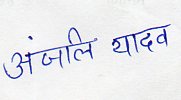 अंजलि यादव